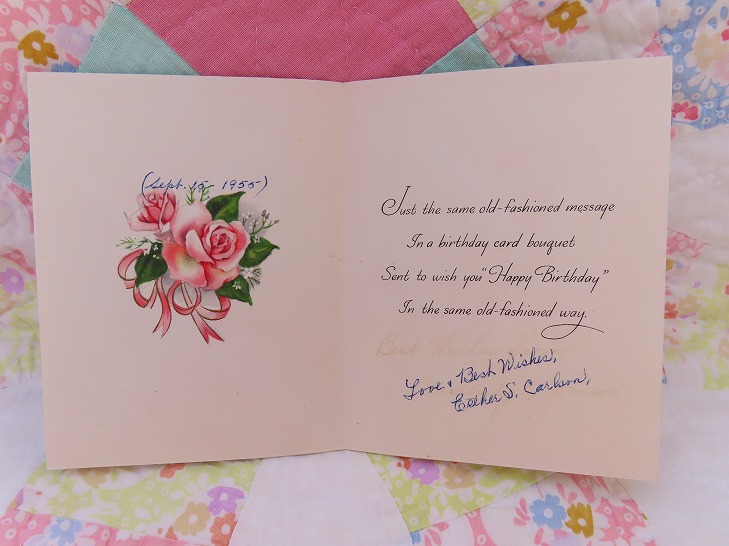 (Sept. 15 1955)
Just the same old-fashioned message
In a birthday card bouquet
Sent to wish you "Happy Birthday"
In the same old-fashioned way.
Best Wishes
Love & Best Wishes,
Esther S. Carlson,